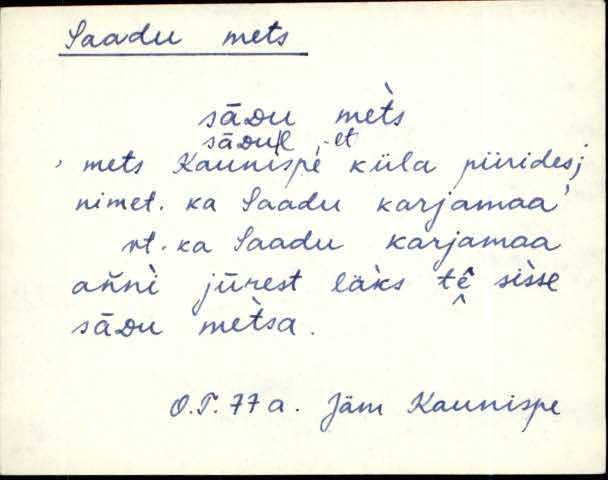 Saadu mets
sāDu mèts
sāDul̥e, -et
' mets Kaunispe küla piirides;
nimet. ka Saadu karjamaa'
vt. ka Saadu karjamaa
añnì jūrest läks tê sìsse
sāDu mètsa.
O.T. 77 a. Jäm Kaunispe